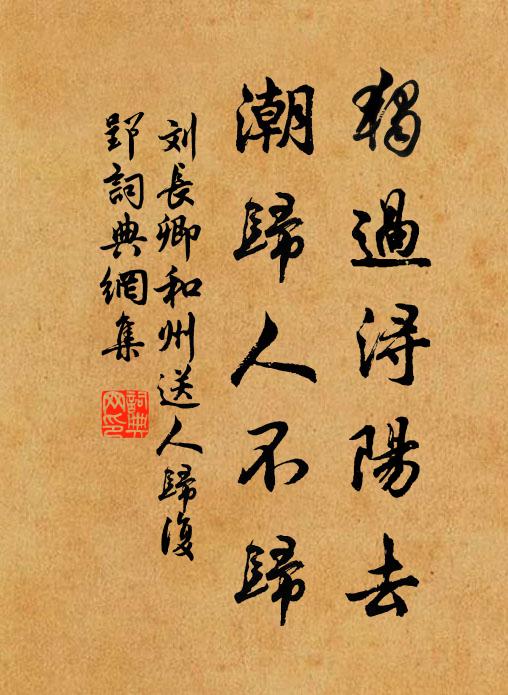 獨過浔陽去
潮歸人不歸
刘長卿和州送人歸復
郢詞典網集
詞典
网印